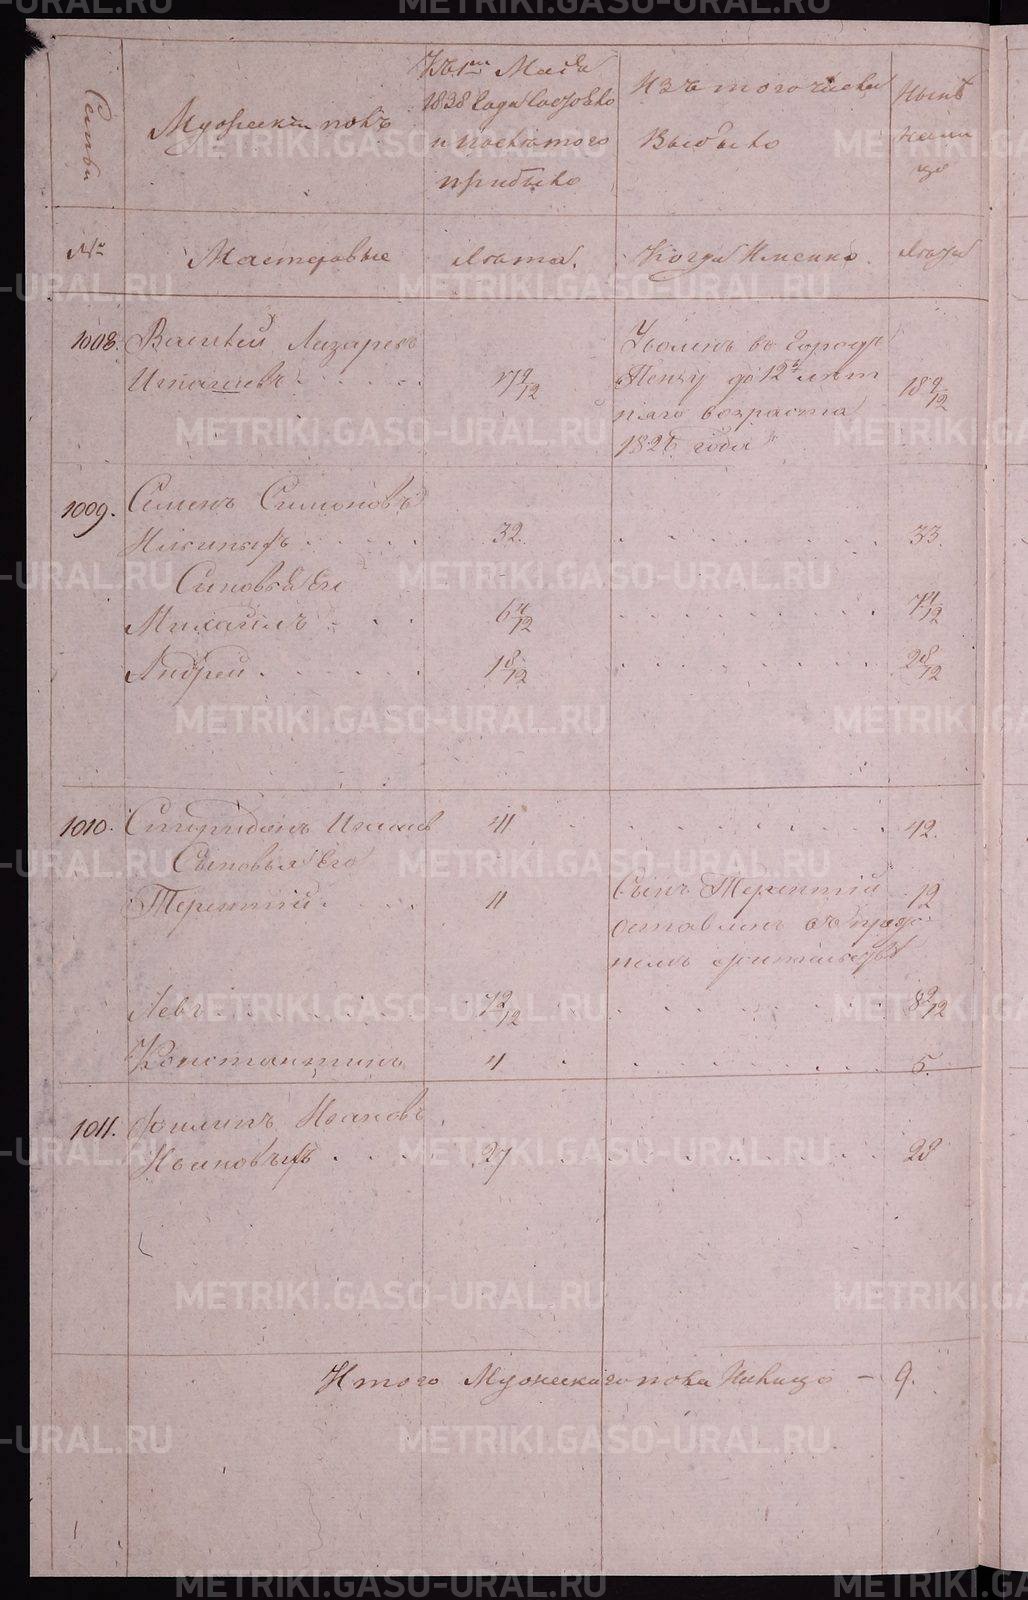 METRIKI.GASO-URAL.RU
Семьи
Мужескъ полъ
Къ 1му Маiя
1838 года состояло
и послѣ того
прибыло
Изъ того числа
Выбыло
Нынѣ
на ли
цо
№
Мастеровые
Лѣта.
Когда Именно.
Лѣта
1008. Василiй Лазаревъ
17 9/12
Уволенъ въ городъ
Пензу до 12ти лѣт
няго возраста
года
18 9/12
1009. Семенъ Симоновъ
32.
33.
Сыновья Его
Михаилъ
6 4/12
7 4/12
Андрей
1 8/12
2 8/12
1010. Спиридонъ Исаковъ
41
42.
Сыновья Его
Терентiй
11
Сынъ Терентiй
оставленъ
12
Левъ
7 2/12
8 2/12
Константинъ
4
5.
1011. Филипъ Ивановъ
27
28
Итого Мужескаго пола Налицо — 9.